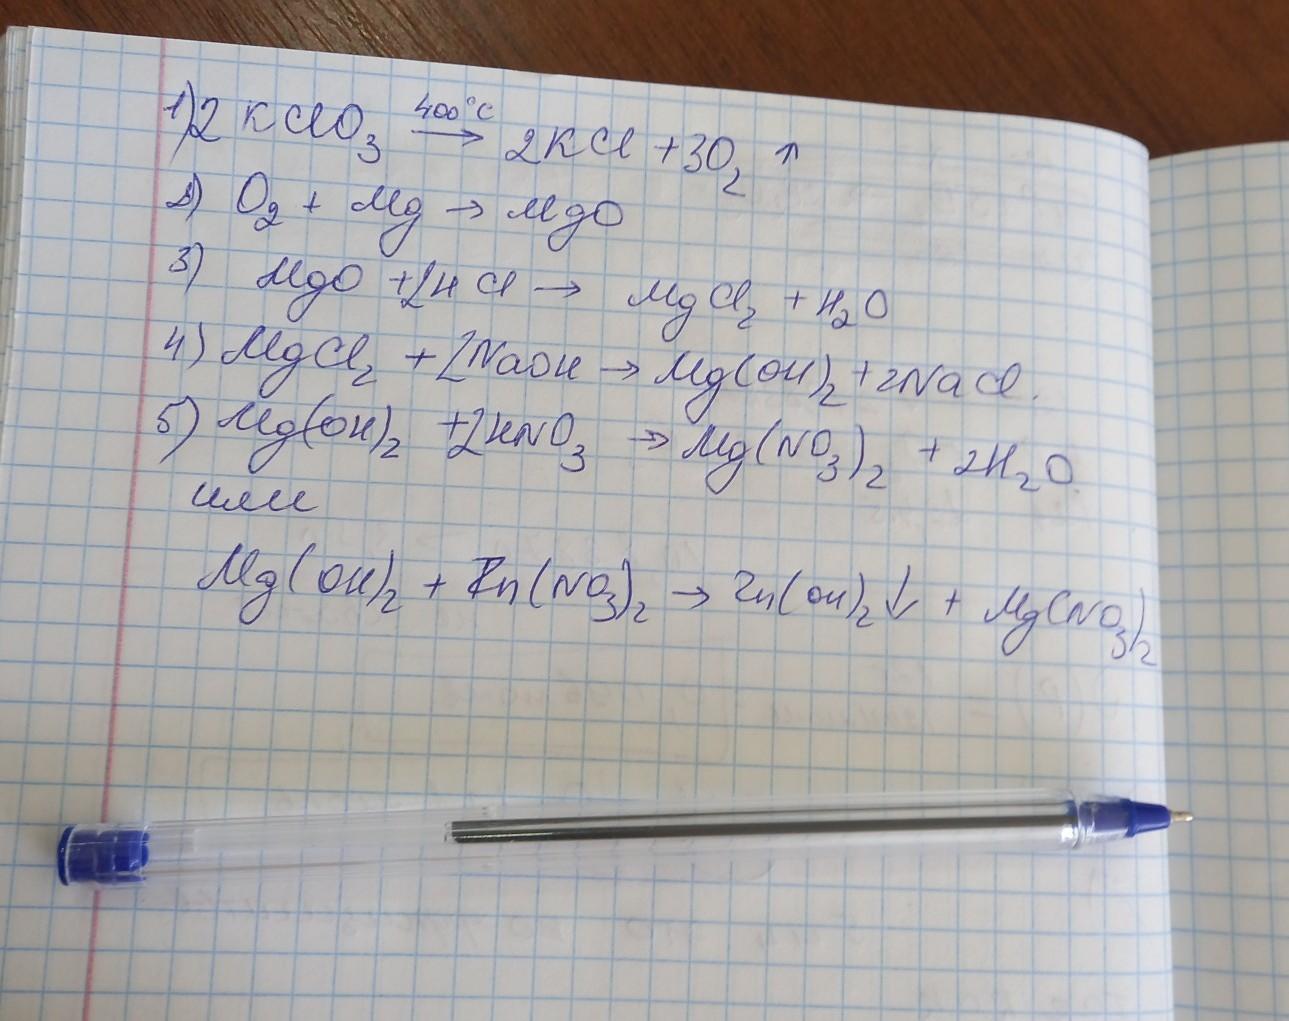 1) 2KClO₃ 400°C → 2KCl + 3O₂ ↑
2) O₂ + Mg → MgO
3) MgO + 2HCl → MgCl₂ + H₂O
4) MgCl₂ + 2NaOH → Mg(OH)₂ + 2NaCl.
5) Mg(OH)₂ + 2HNO₃ → Mg(NO₃)₂ + 2H₂O.
или
Mg(OH)₂ + Zn(NO₃)₂ → Zn(OH)₂↓ + Mg(NO₃)₂